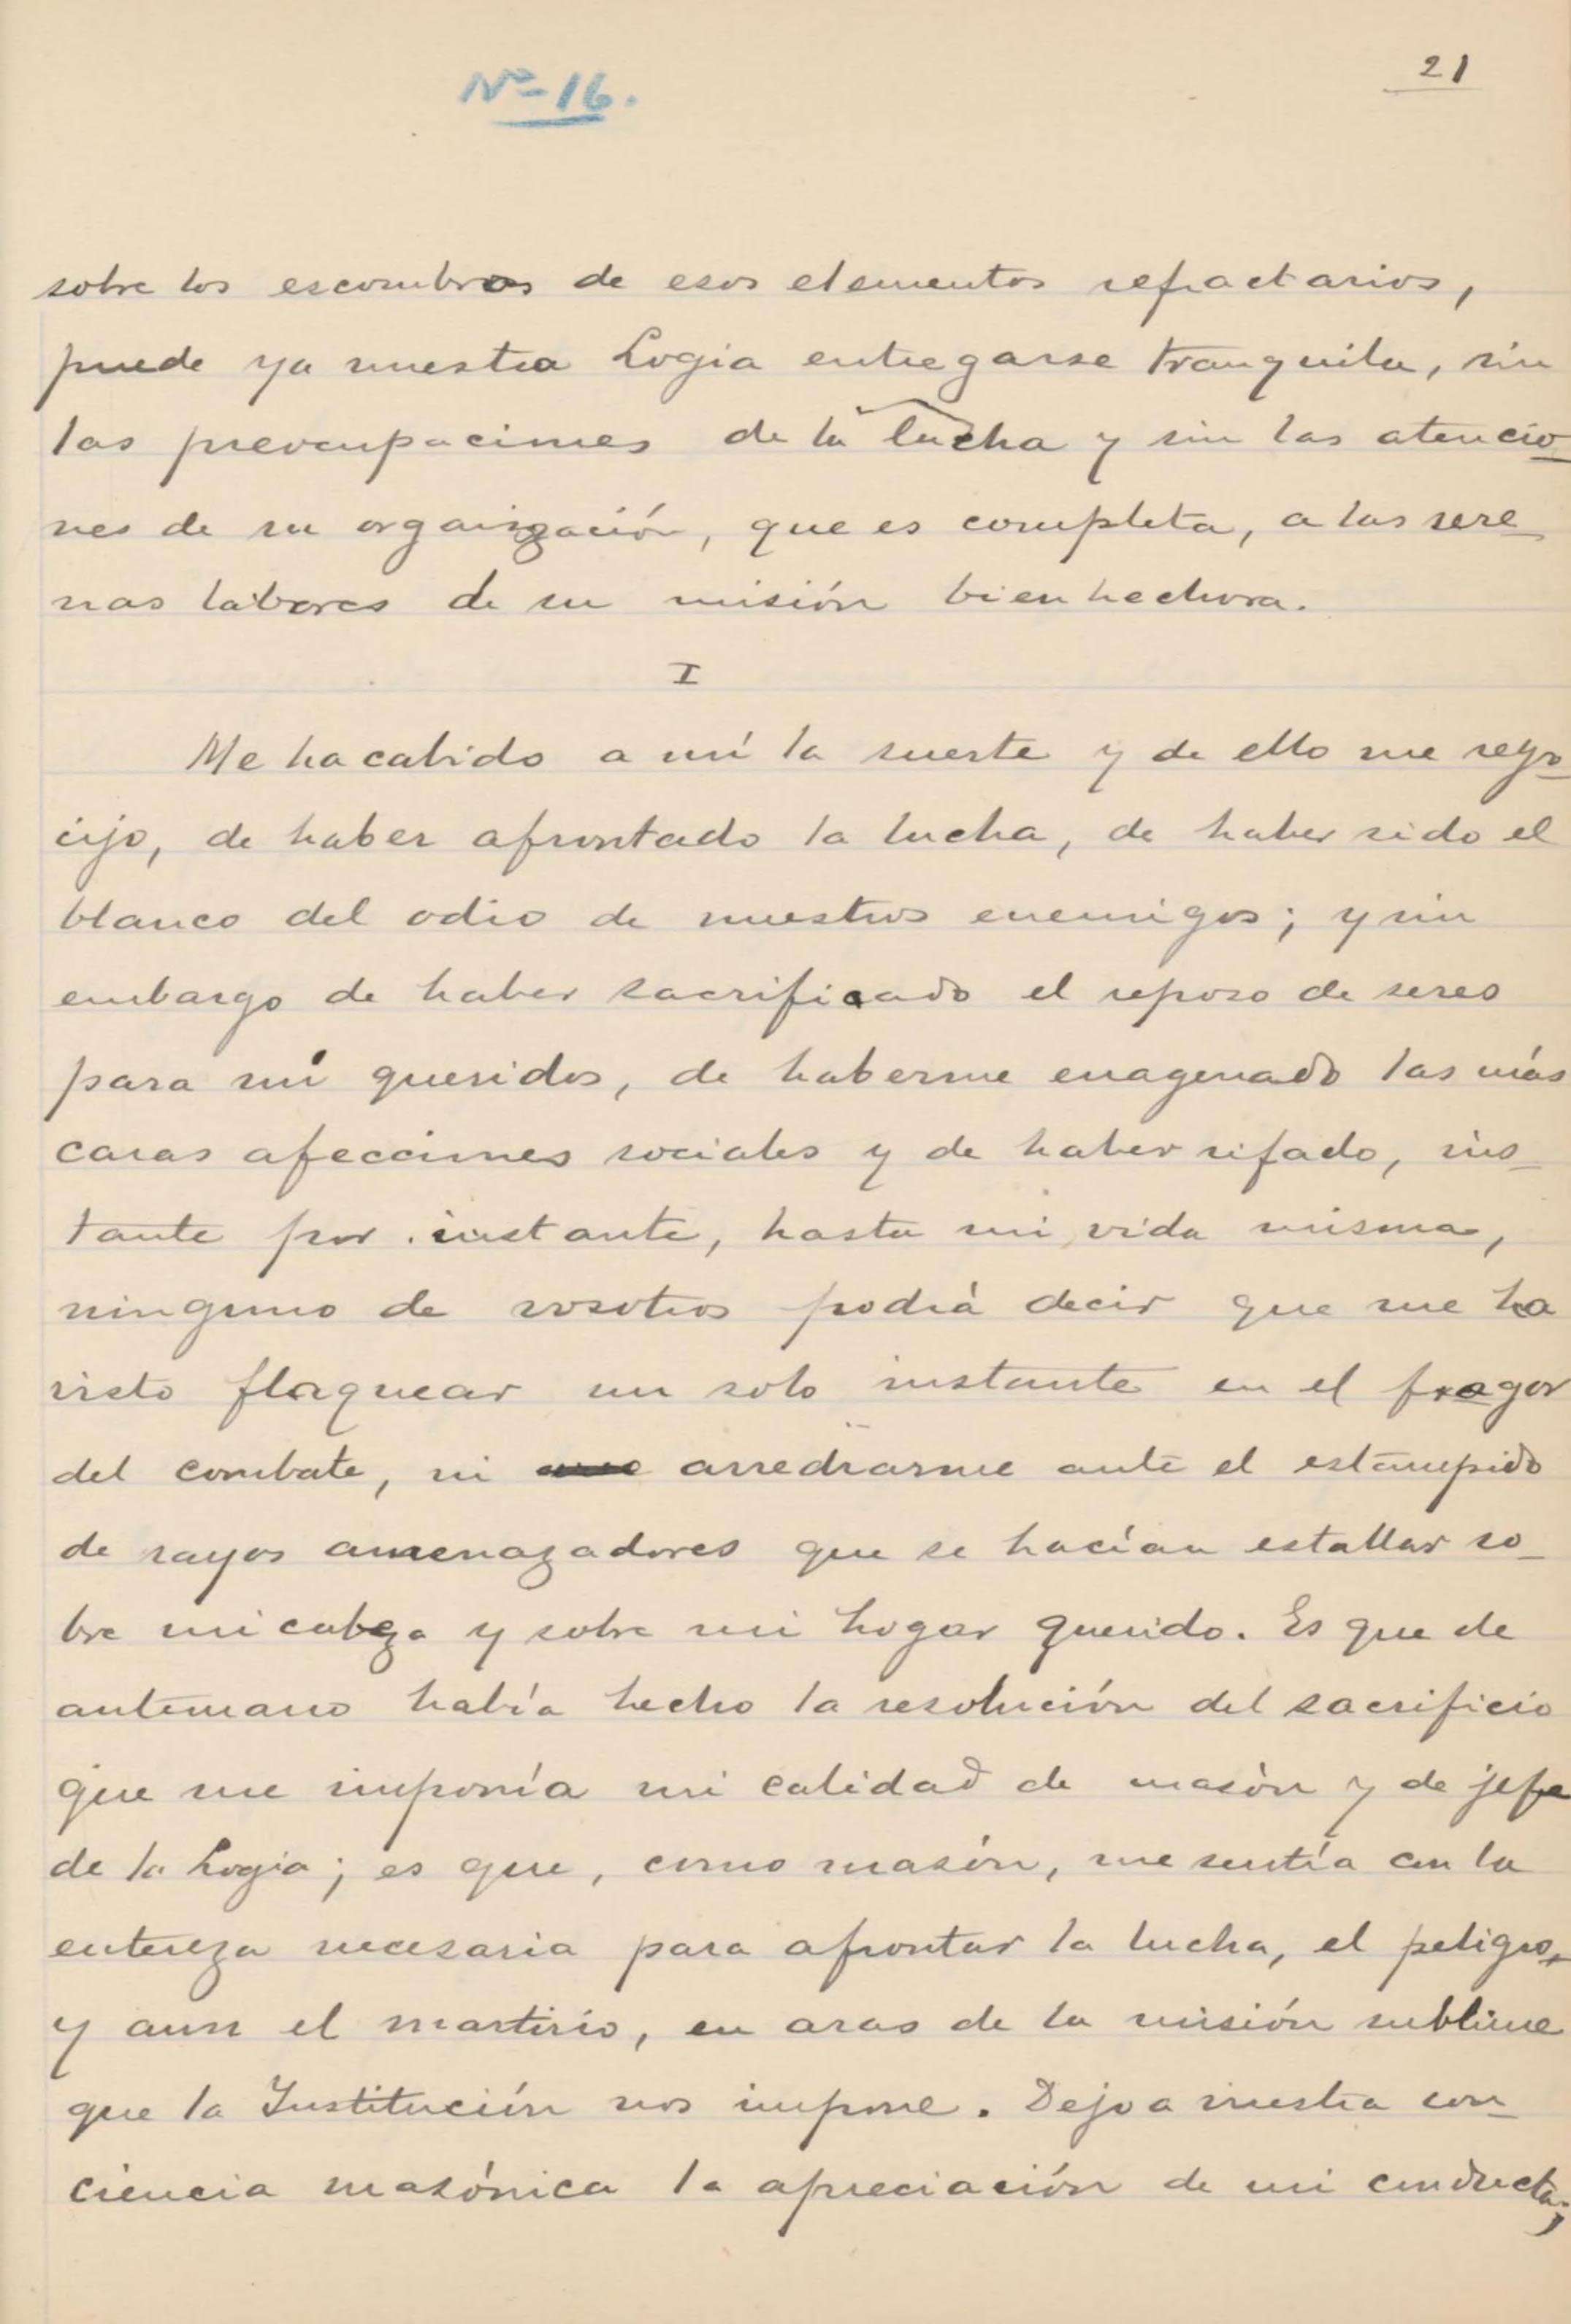 Nº 16.
21
sobre los escombros de esos elementos refractarios,
puede ya nuestra Logia entregarse tranquila, sin
las preocupaciones de la lucha y sin las atencio-
nes de su organización, que es completa, a las sere-
nas labores de su misión bienhechora.
I
Me ha cabido a mí la suerte y de ello me rego-
cijo, de haber afrontado la lucha, de haber sido el
blanco del odio de nuestros enemigos; y sin
embargo de haber sacrificado el reposo de seres
para mí queridos, de haberme enagenado las más
caras afecciones sociales y de haber rifado, ins-
tante por instante, hasta mi vida misma,
ninguno de vosotros podrá decir que me ha
visto flaquear un solo instante en el fragor
del combate, ni arredrarme ante el estampido
de rayos amenazadores que se hacían estallar so-
bre mi cabeza y sobre mi hogar querido. Es que de
antemano había hecho la resolución del sacrificio
que me imponía mi calidad de masón y de jefe
de la Logia; es que, como masón, me sentía con la
entereza necesaria para afrontar la lucha, el peligro,
y aun el martirio, en aras de la misión sublime
que la Institución nos impone. Dejo a vuestra con-
ciencia masónica la apreciación de mi conducta;